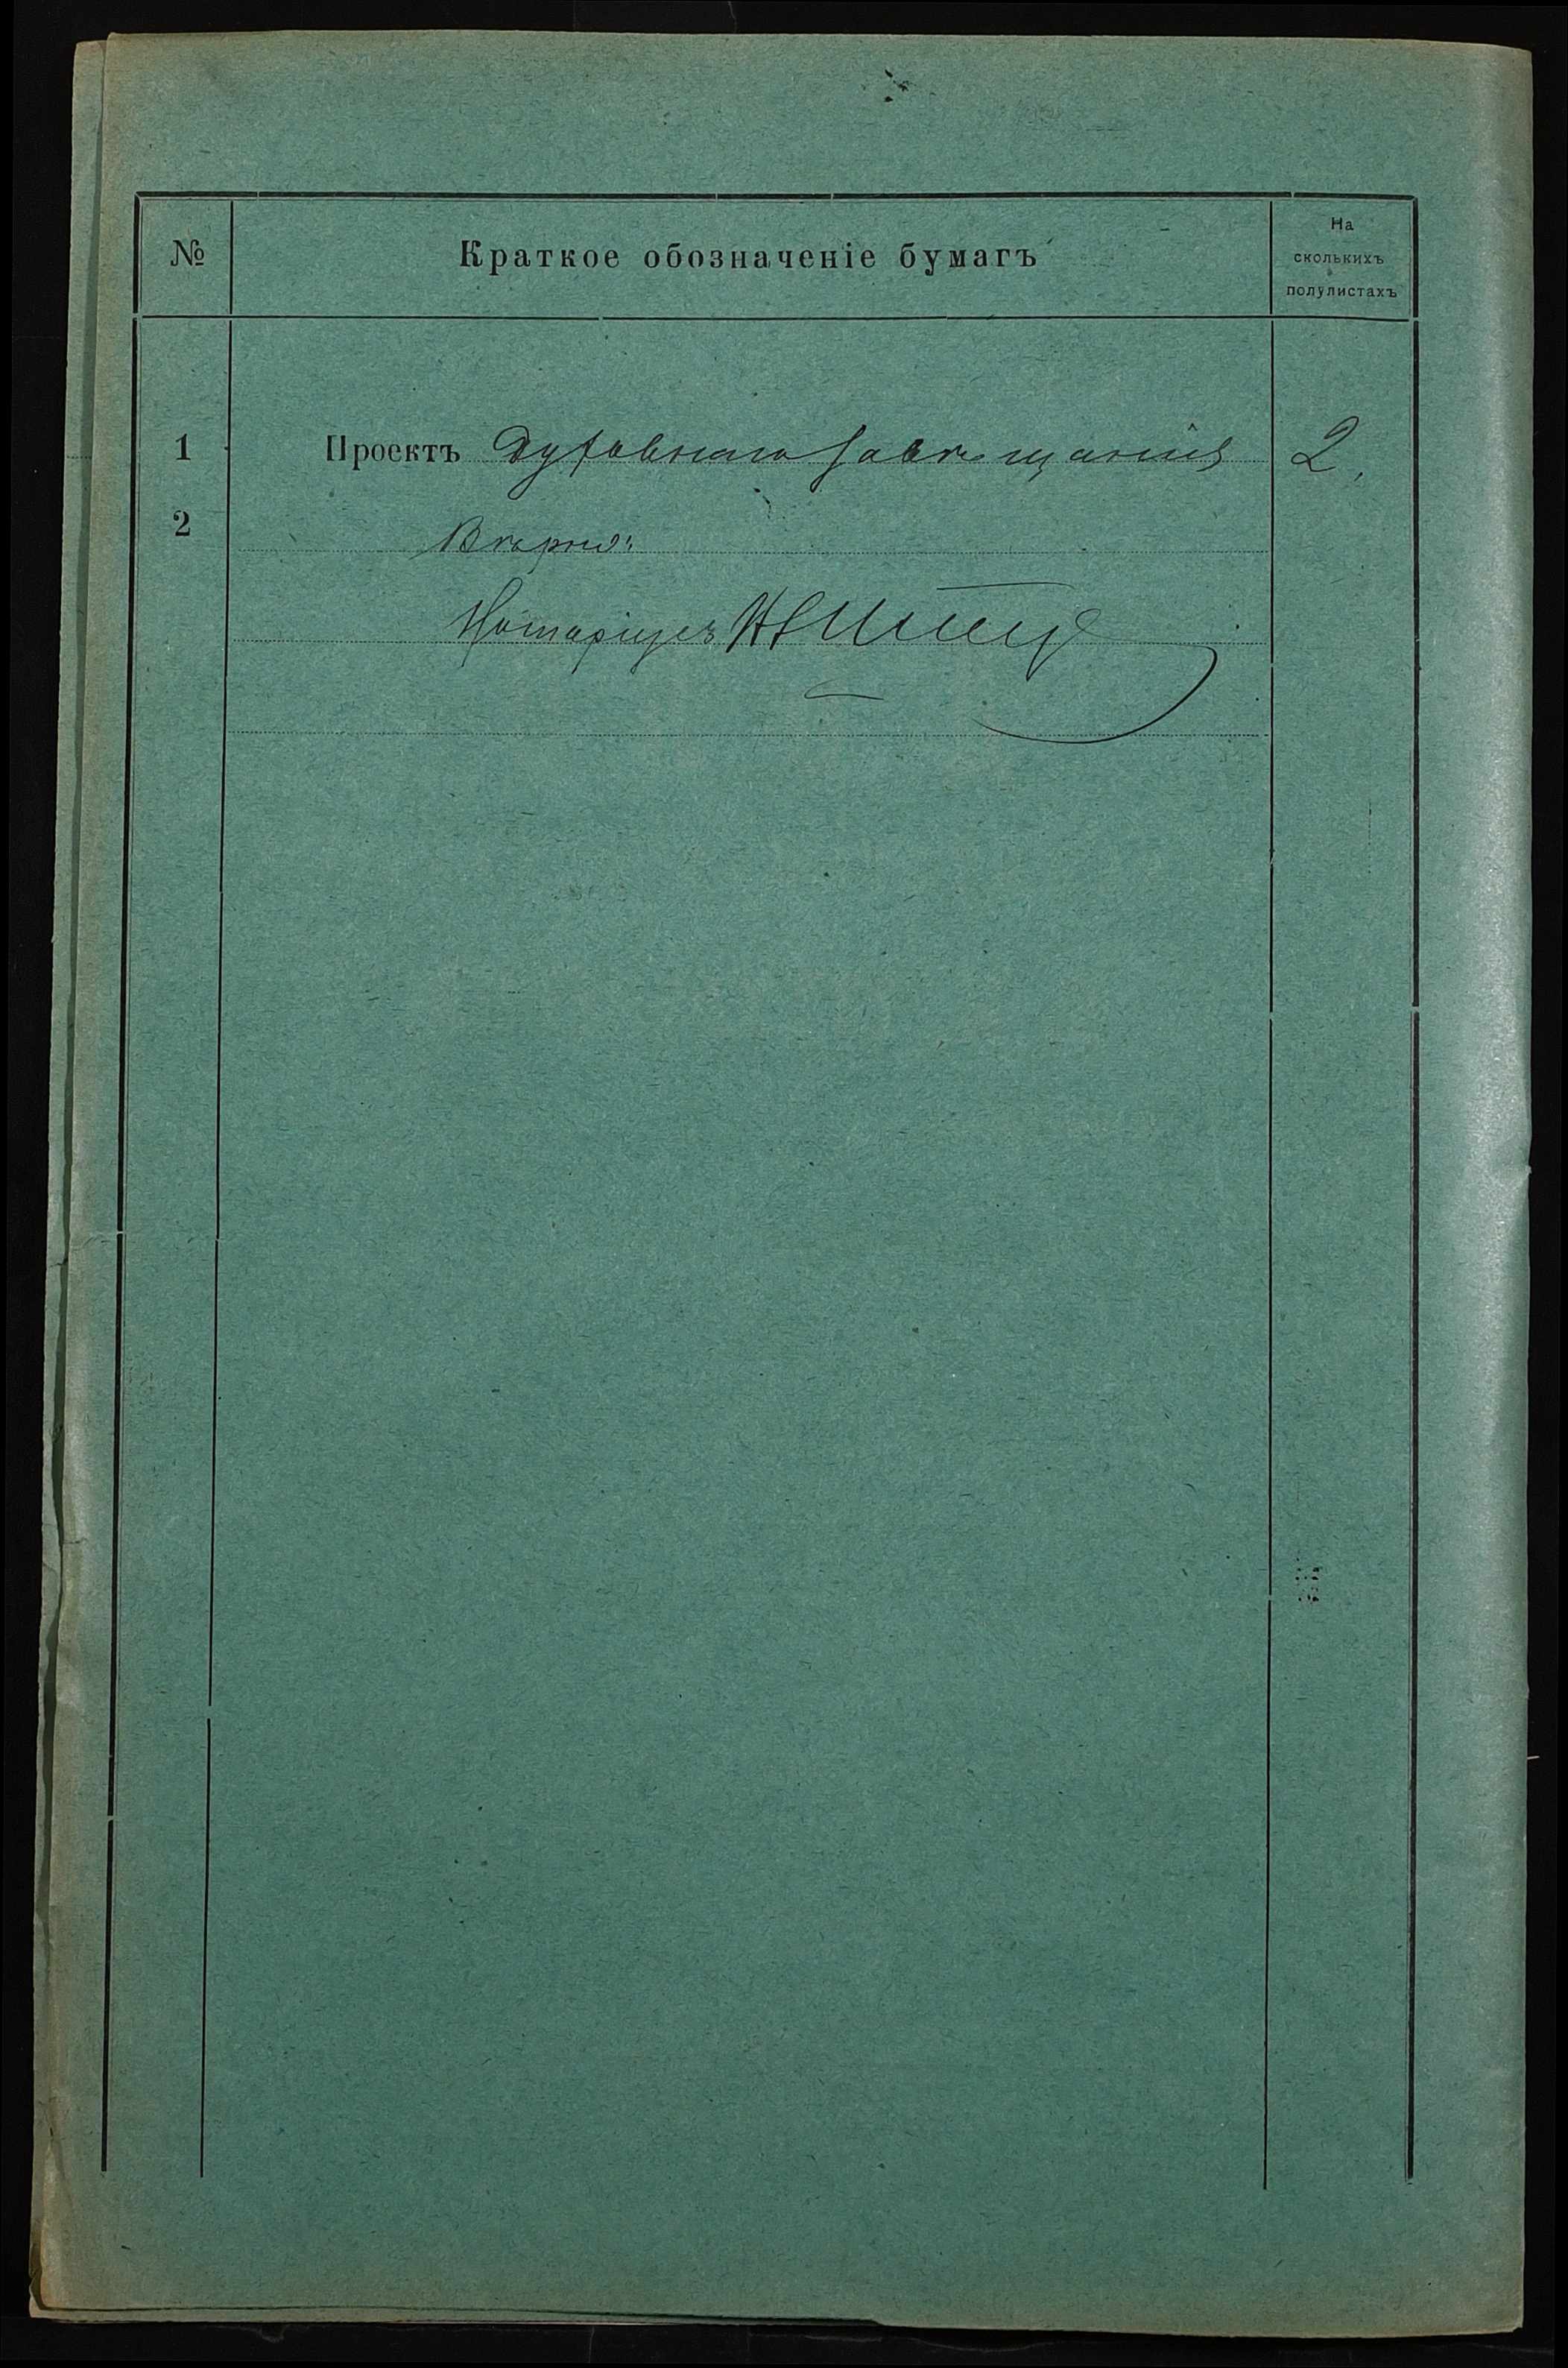 №
Краткое обозначеніе бумагъ
На
сколькихъ
полулистахъ
1 Проектъ духовнаго завѣщанія 2.
2
Вѣрно:
Нотаріусъ